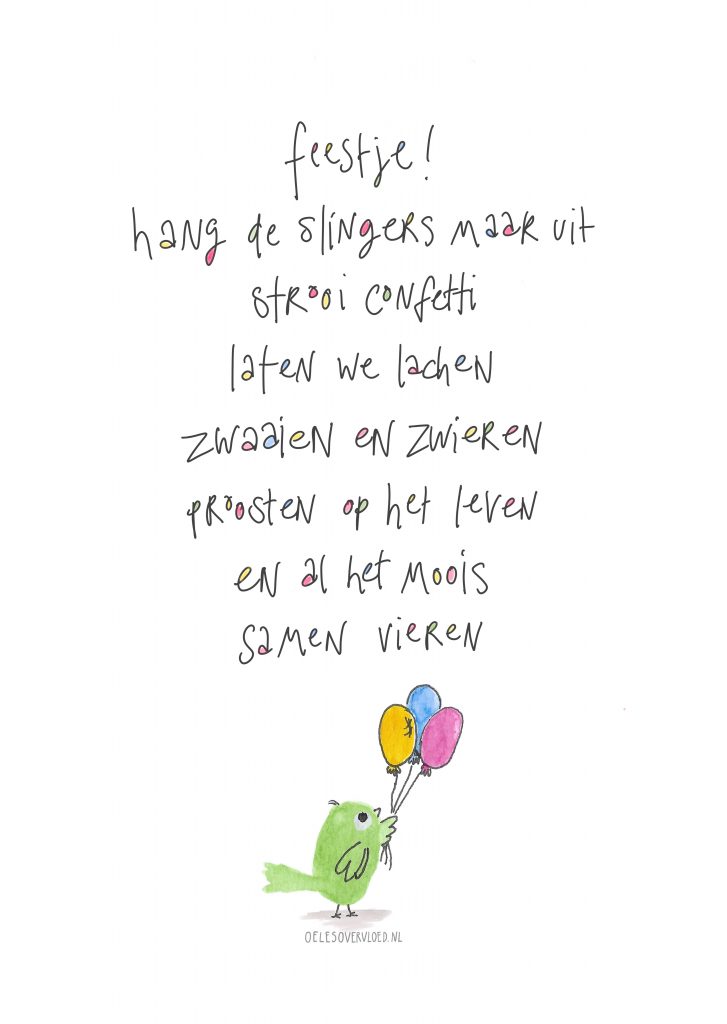 feestje!
hang de slingers maar uit
strooi confetti
laten we lachen
zwaaien en zwieren
proosten op het leven
en al het moois
samen vieren
OELESOVERVLOED.NL